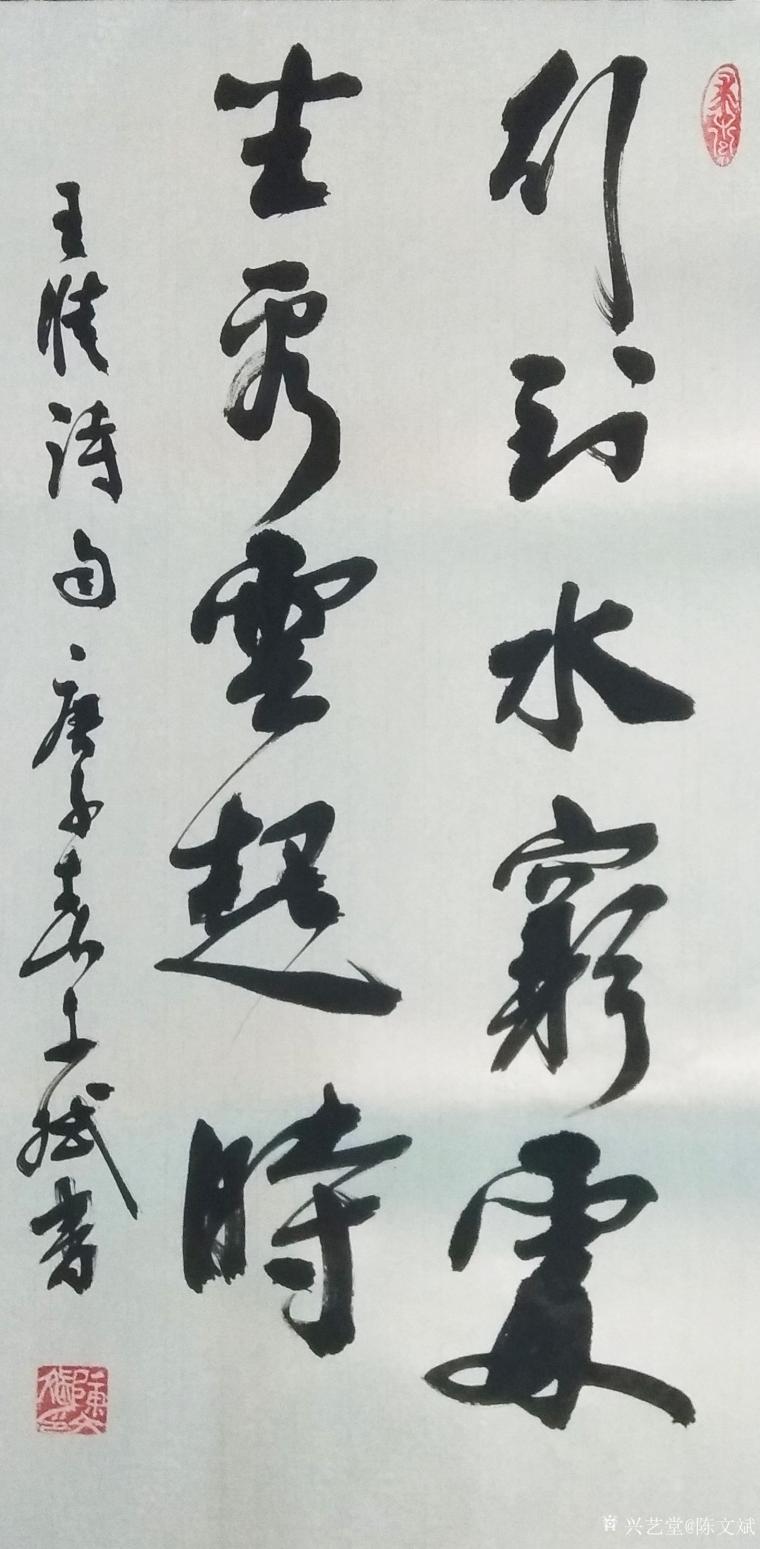 行到水窮處
坐看雲起時
王維詩句
庚子春文斌書
陳文斌印
兴艺堂@陈文斌